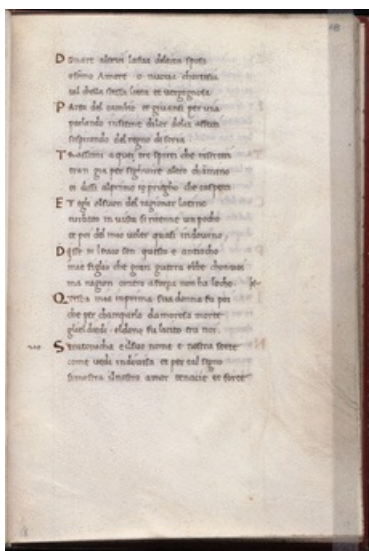 Donare altrui lasua dilecta sposa
osimo Amore o nuova chortesia
tal chella stessa lieta et vergognosa
Parea del cambio et givansi per via
parlando insieme dilor dolci affetti
sospirando del regno di soria
Trassimi a quei tre spirti che ristretti
eran gia per seguire altro chamino
et dissi alprimo io prieghо che taspetti
Et egli alsuon del ragionar latino
turbato in vista si ritenne un pocho
et poi del mio voler quasi indovino
Disse io son questo e antiocho
mio figlio che gran guerra ebbe
ma ragion contra aforza non ha locho
Questa mia inprima sua donna fu poi
che per champarlo damorosa morte
gliel diedi eldono fu licito tra noi
Stratonicha e ilsuo nome e nostra sorte
come vedi indivisa et per tal segno
simostra ilnostro amor tenacie et forte